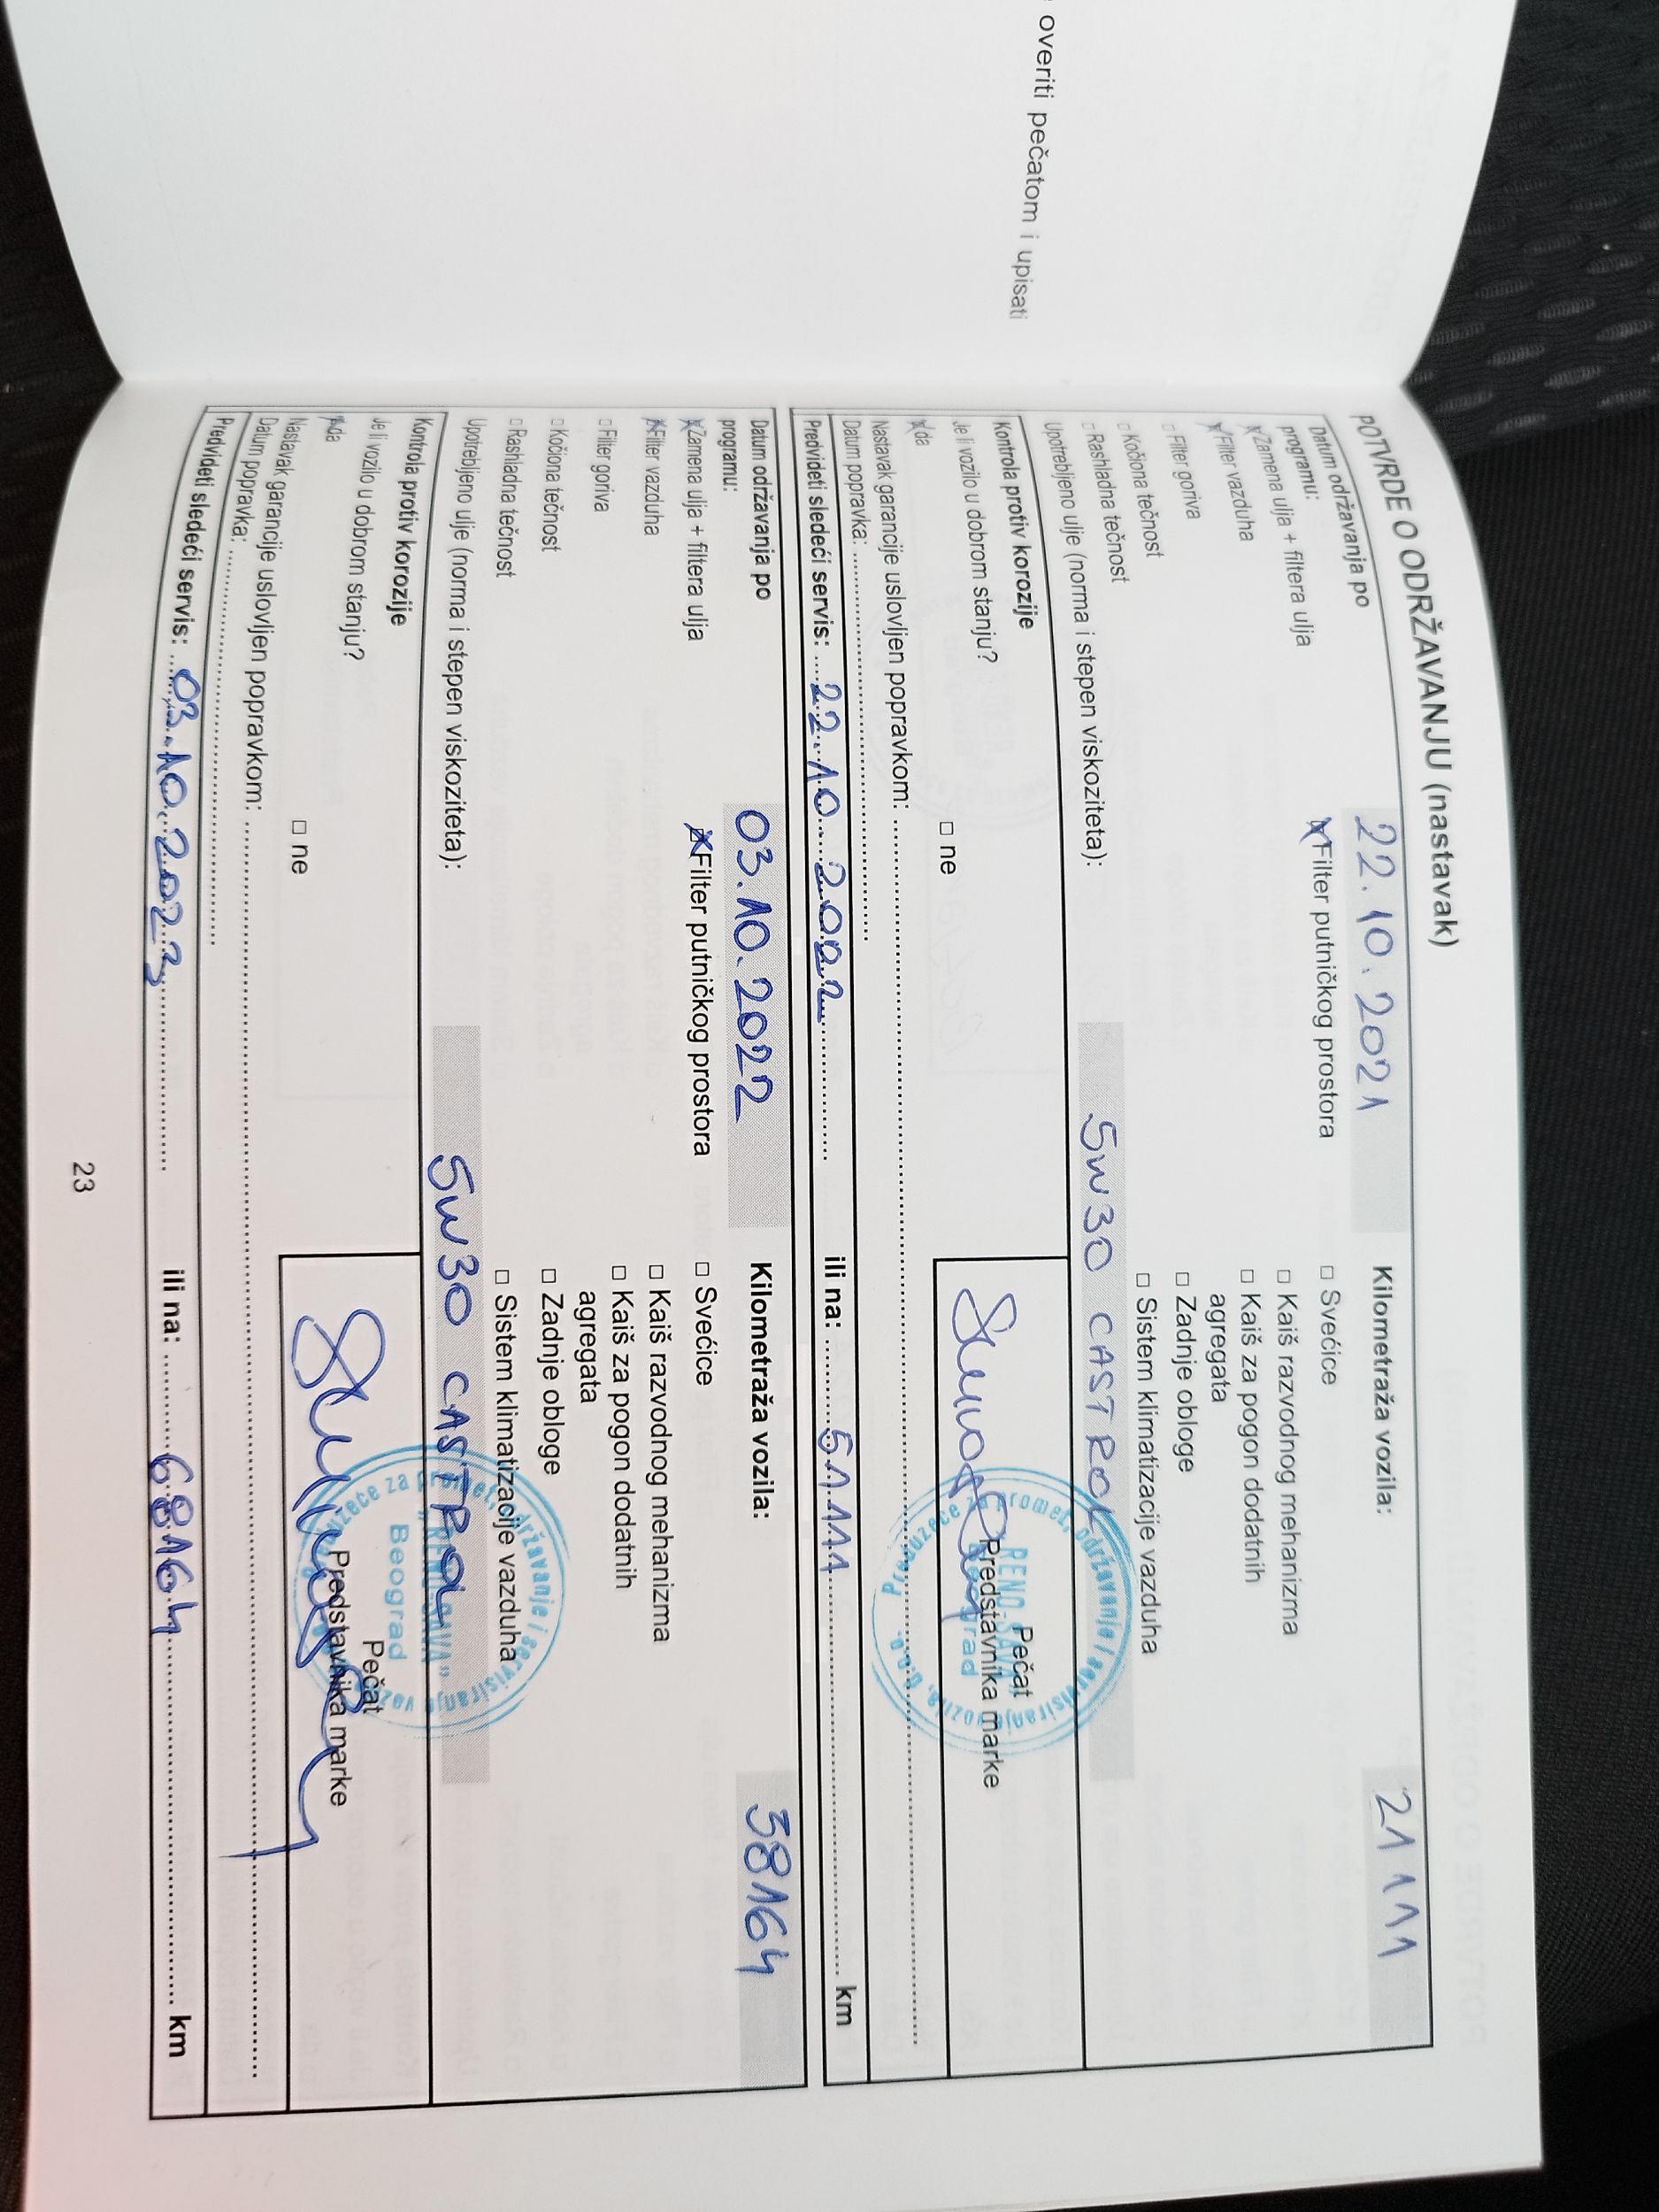 overiti pečatom i upisati
POTVRDE O ODRŽAVANJU (nastavak)
Datum održavanja po programu: 22.10.2021 Kilometraža vozila: 21111
Zamena ulja + filtera ulja Filter putničkog prostora □ Svećice
Filter vazduha □ Kaiš razvodnog mehanizma
□ Filter goriva □ Kaiš za pogon dodatnih agregata
□ Kočiona tečnost □ Zadnje obloge
□ Rashladna tečnost □ Sistem klimatizacije vazduha
Upotrebljeno ulje (norma i stepen viskoziteta): 5W30 CASTROL
Kontrola protiv korozije
Je li vozilo u dobrom stanju?
da □ ne
Pečat
Predstavnika marke
Preduzeće za promet, održavanje i servisiranje vozila, d.o.o.
Beograd
Nastavak garancije uslovljen popravkom:
Datum popravka:
Predvideti sledeći servis: 22.10.2022 ili na: 51111 km
Datum održavanja po programu: 03.10.2022 Kilometraža vozila: 38164
Zamena ulja + filtera ulja Filter putničkog prostora □ Svećice
Filter vazduha □ Kaiš razvodnog mehanizma
□ Filter goriva □ Kaiš za pogon dodatnih agregata
□ Kočiona tečnost □ Zadnje obloge
□ Rashladna tečnost □ Sistem klimatizacije vazduha
Upotrebljeno ulje (norma i stepen viskoziteta): 5W30 CASTROL
Kontrola protiv korozije
Je li vozilo u dobrom stanju?
da □ ne
Pečat
Predstavnika marke
održavanje i servisiranje
Beograd
Nastavak garancije uslovljen popravkom:
Datum popravka:
Predvideti sledeći servis: 03.10.2023 ili na: 68164 km
23